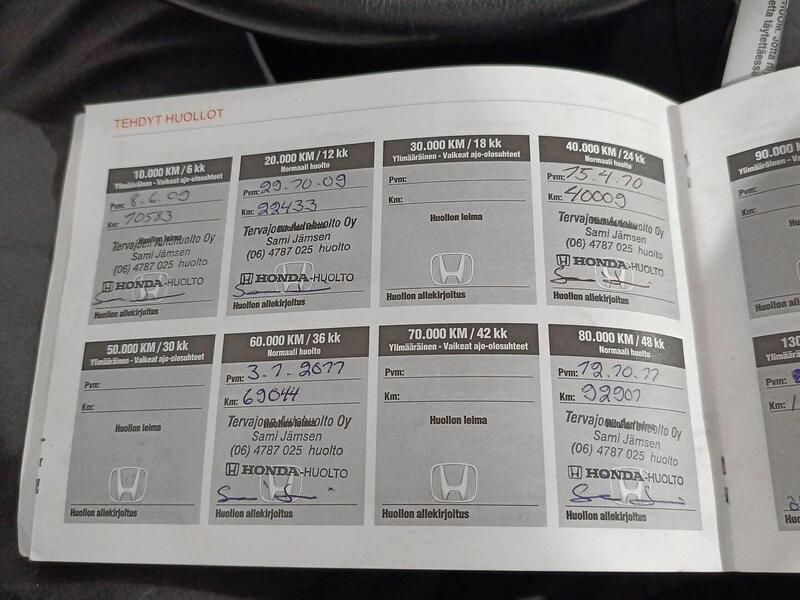 TEHDYT HUOLLOT
10.000 KM / 6 kk
Ylimääräinen - Vaikeat ajo-olosuhteet
Pvm: 8.6.09
Km: 10583
Huollon leima
Tervajoen Autohuolto Oy
Sami Jämsen
(06) 4787 025 huolto
HONDA-HUOLTO
Huollon allekirjoitus
20.000 KM / 12 kk
Normaali huolto
Pvm: 29.10.09
Km: 22433
Tervajoen Autohuolto Oy
Sami Jämsen
(06) 4787 025 huolto
HONDA-HUOLTO
Huollon allekirjoitus
30.000 KM / 18 kk
Ylimääräinen - Vaikeat ajo-olosuhteet
Pvm:
Km:
Huollon leima
Huollon allekirjoitus
40.000 KM / 24 kk
Normaali huolto
Pvm: 15.4.10
Km: 40009
Tervajoen Autohuolto Oy
Sami Jämsen
(06) 4787 025 huolto
HONDA-HUOLTO
Huollon allekirjoitus
50.000 KM / 30 kk
Ylimääräinen - Vaikeat ajo-olosuhteet
Pvm:
Km:
Huollon leima
Huollon allekirjoitus
60.000 KM / 36 kk
Normaali huolto
Pvm: 3.1.2011
Km: 69044
Tervajoen Autohuolto Oy
Huollon leima
Sami Jämsen
(06) 4787 025 huolto
HONDA-HUOLTO
Huollon allekirjoitus
70.000 KM / 42 kk
Ylimääräinen - Vaikeat ajo-olosuhteet
Pvm:
Km:
Huollon leima
Huollon allekirjoitus
80.000 KM / 48 kk
Normaali huolto
Pvm: 12.10.11
Km: 92901
Tervajoen Autohuolto Oy
Sami Jämsen
(06) 4787 025 huolto
HONDA-HUOLTO
Huollon allekirjoitus
90.000
Ylimääräinen
Pvm:
Km:
Huollon
130
Pvm:
Km:
täytettäessä